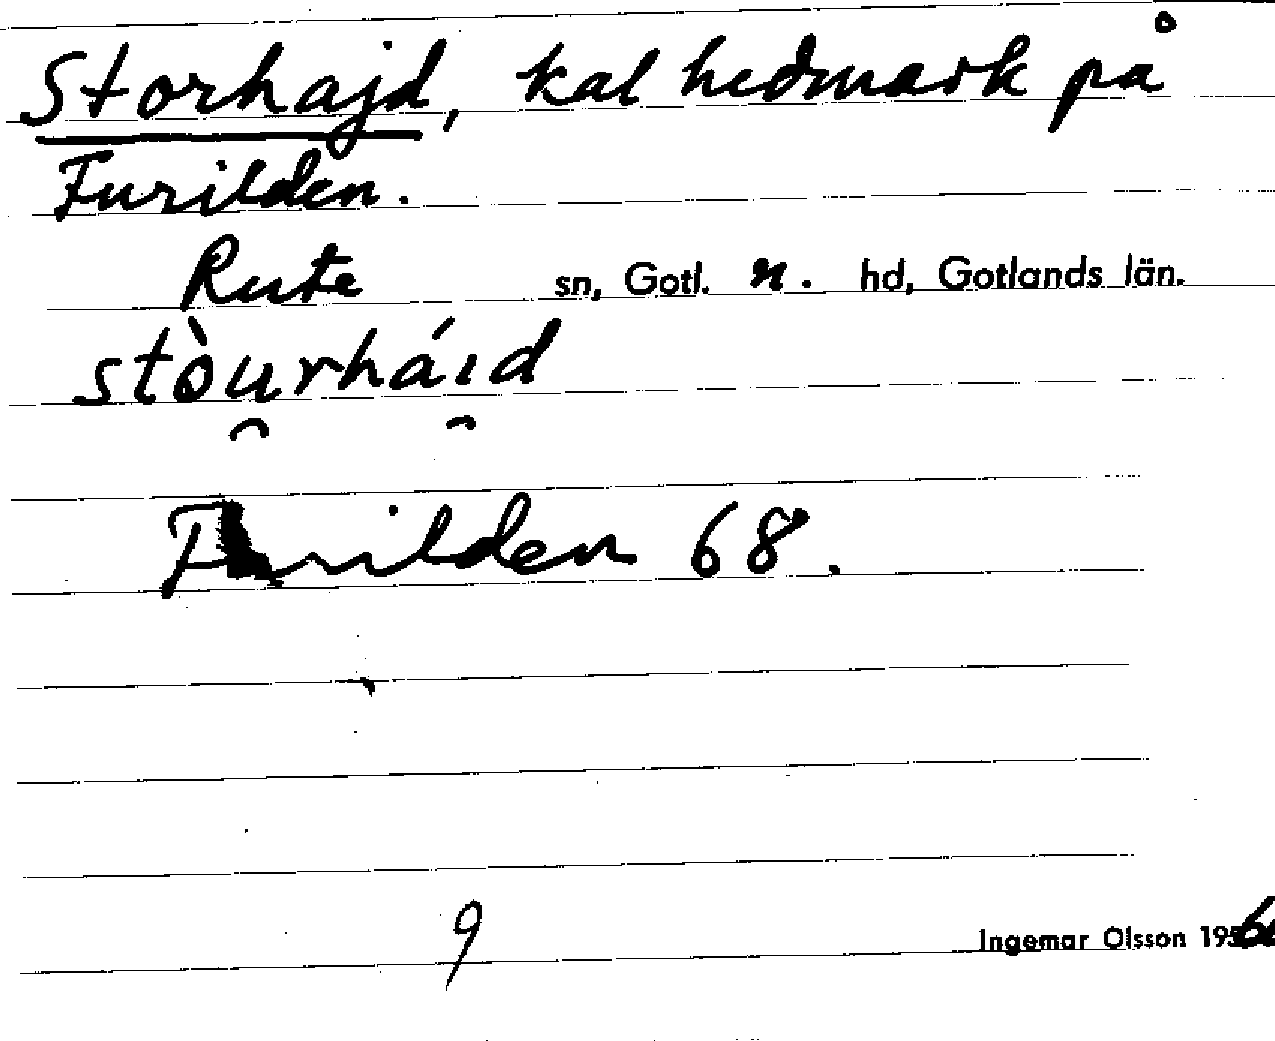 Storhajd, kal hedmark på
Furilden.
Rute sn, Gotl. n. hd, Gotlands län.
stòu̯rhái̯d
Furilden 68.
9
Ingemar Olsson 195